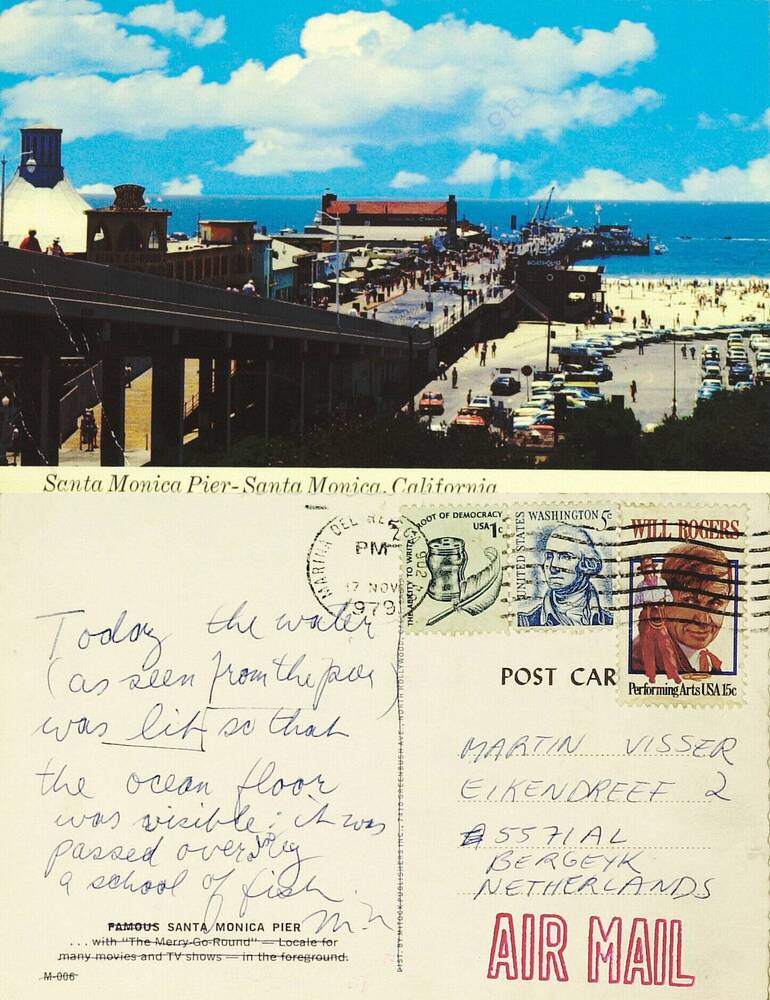 BOATHOUSE
Santa Monica Pier-Santa Monica, California
MARINA DEL REY
PM
17 NOV
1979
902
THE ABILITY TO WRITE. A ROOT OF DEMOCRACY
USA 1c
UNITED STATES
WASHINGTON 5c
WILL ROGERS
Performing Arts USA 15c
Today the water
(as seen from the pier)
was lit so that
the ocean floor
was visible; it was
passed over by
a school of fish.
FAMOUS SANTA MONICA PIER
. . . with "The Merry-Go-Round" — Locale for
many movies and TV shows — in the foreground.
M-006
DIST. BY MITOCK PUBLISHERS INC., 7410 GREENBUSH AVE., NORTH HOLLYWOOD, C
POST CAR
MARTIN VISSER
EIKENDREEF 2
5571AL
BERGEYK
NETHERLANDS
AIR MAIL